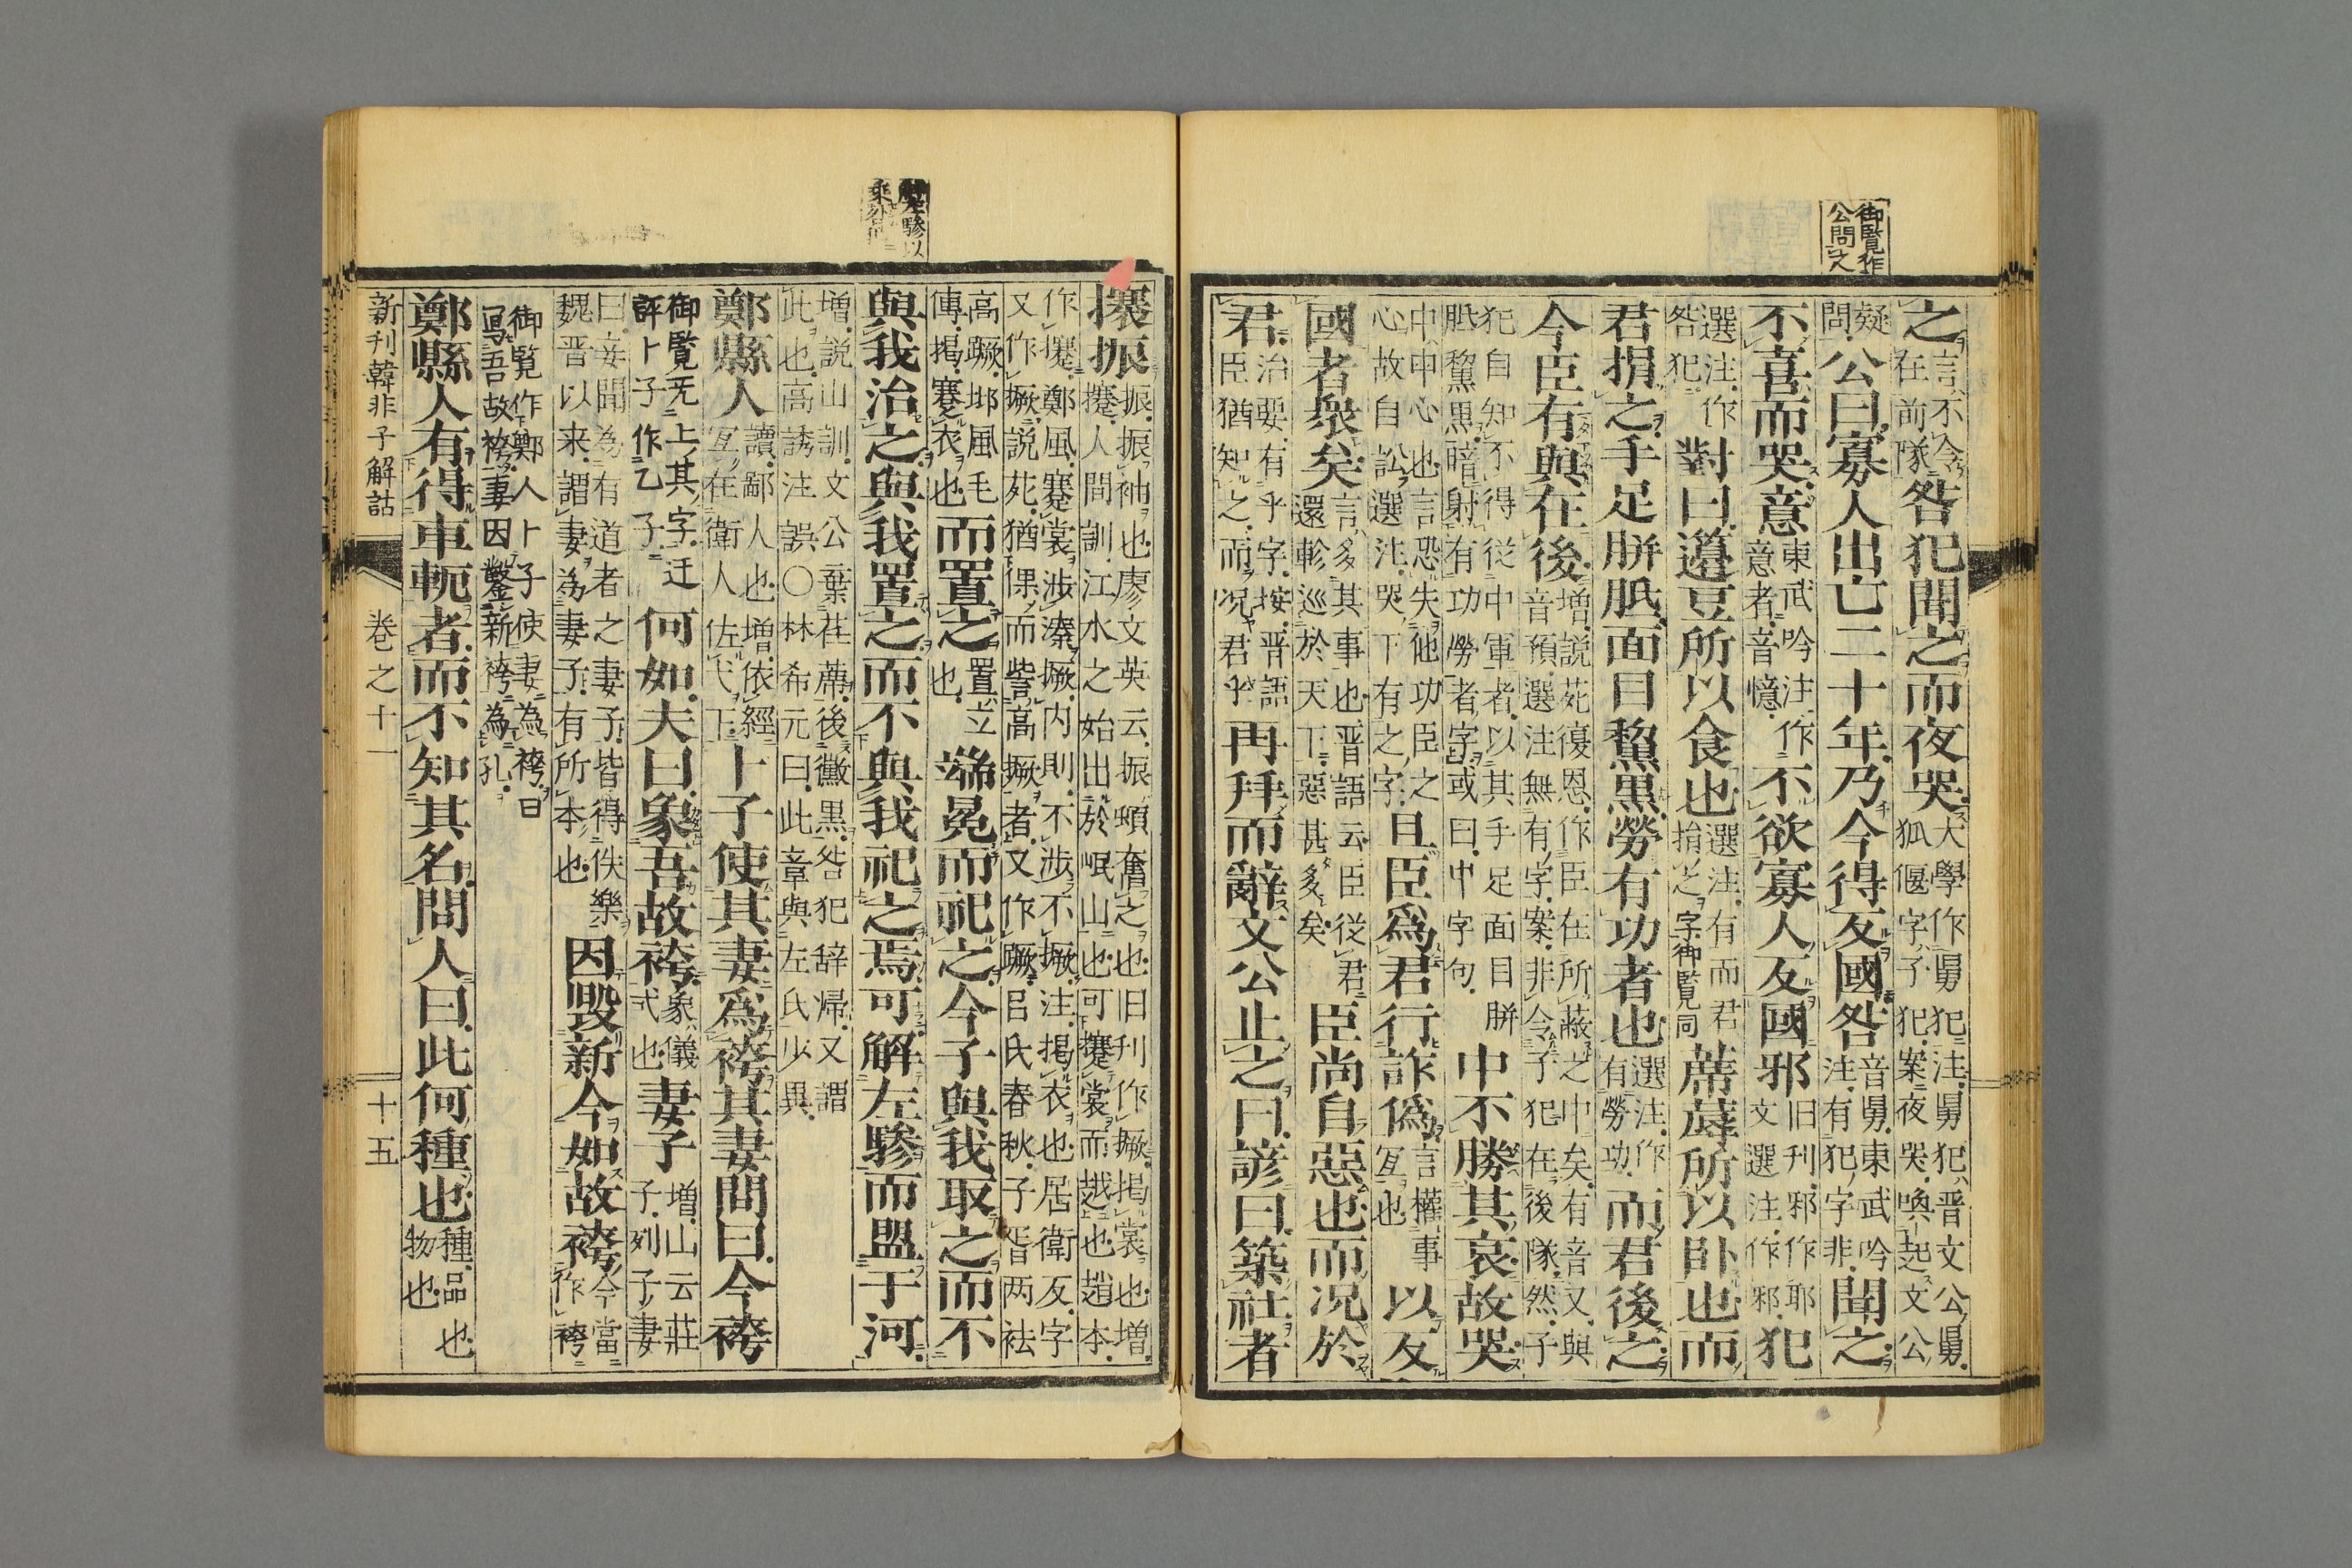 御覧作
公問之
之言、不令
在前隊咎犯聞之而夜哭犬學作舅犯注舅犯晋文公舅
狐偃字子犯案夜哭喚起文公
疑
問公曰寡人出亡二十年乃今得反國咎音舅東武吟
注有犯字非聞之
不喜而哭意東武吟注作
意者音憶不欲寡人反國邪旧刋邪作耶
文選注作邪犯
選注作
咎犯對曰籩豆所以食也選注有而君
捐之字御覧同蓆蓐所以卧也而
君捐之手足胼胝面目黧黒勞有功者也選注作
有勞功而君後之
今臣有與在後增説苑復恩作臣在所蔽之中矣有音又與
音預選注無有字案非令子犯在後隊然子
犯自知不得従中軍者以其手足面目胼
胝黧黒暗射有功勞者字或曰中字句中不勝其哀故哭
中中心也言恐失他功臣之
心故自訟選注哭下有之字且臣爲君行詐僞言權事
冝也以反
國者衆矣言多其事也晋語云臣従君
還軫巡於天下惡甚多矣臣尚自惡也而况於
君治要有乎字按晋語
臣猶知之而况君乎再拜而辭文公止之曰諺曰築社者
解左驂以
攓振振振袖也廖文英云振頓奮之也旧刋作撅掲裳也増
攓人間訓江水之始出於岷山也可攓裳而越也趙本
作攓鄭風蹇裳渉溱撅内則不渉不撅注掲衣也居衛反字
又作撅説苑猶倮而訾高撅者又作蹶呂氏春秋子胥两袪
高蹶邶風毛
傳掲蹇衣也而置之置立
也端冕而祀之今子與我取之而不
與我治之與我置之而不與我祀之焉可解左驂而盟于河
増説山訓文公葉荏蓆後黴黒咎犯辞帰又謂
此也高誘注誤〇林希元曰此章與左氏少異
鄭縣人讀鄙人也増依經
冝在衛人佐弋下卜子使其妻爲袴其妻問曰今袴
御覧无上其字迂
評卜子作乙子何如夫曰象吾故袴象儀
弌也妻子増山云莊
子列子妻
曰妾聞為有道者之妻子皆得佚樂
魏晋以来謂妻為妻子有所本也因毀新令如故袴今當
作袴
御覧作鄭人卜子使妻為袴曰
冩吾故袴妻因鑿新袴為孔
鄭縣人有得車軛者而不知其名問人曰此何種也種品也
物也
新刊韓非子解詁 卷之十一 十五